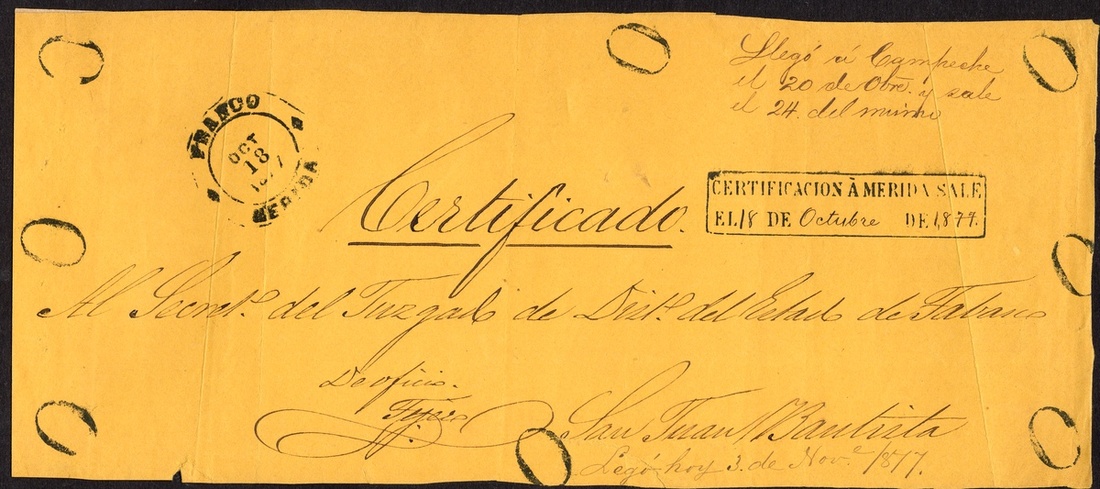 Llegó á Campeche
el 20 de Obre. y sale
el 24. del mismo
FRANCO
OCT
18
MERIDA
CERTIFICACION À MERIDA SALE
EL 18 DE Octubre DE 1,877.
Certificado.
Al Secret.º del Juzgado de Dist.º del Estado de Tabasco
De oficio.
San Juan Bautista
Legó hoy 3. de Nov.e 1877.